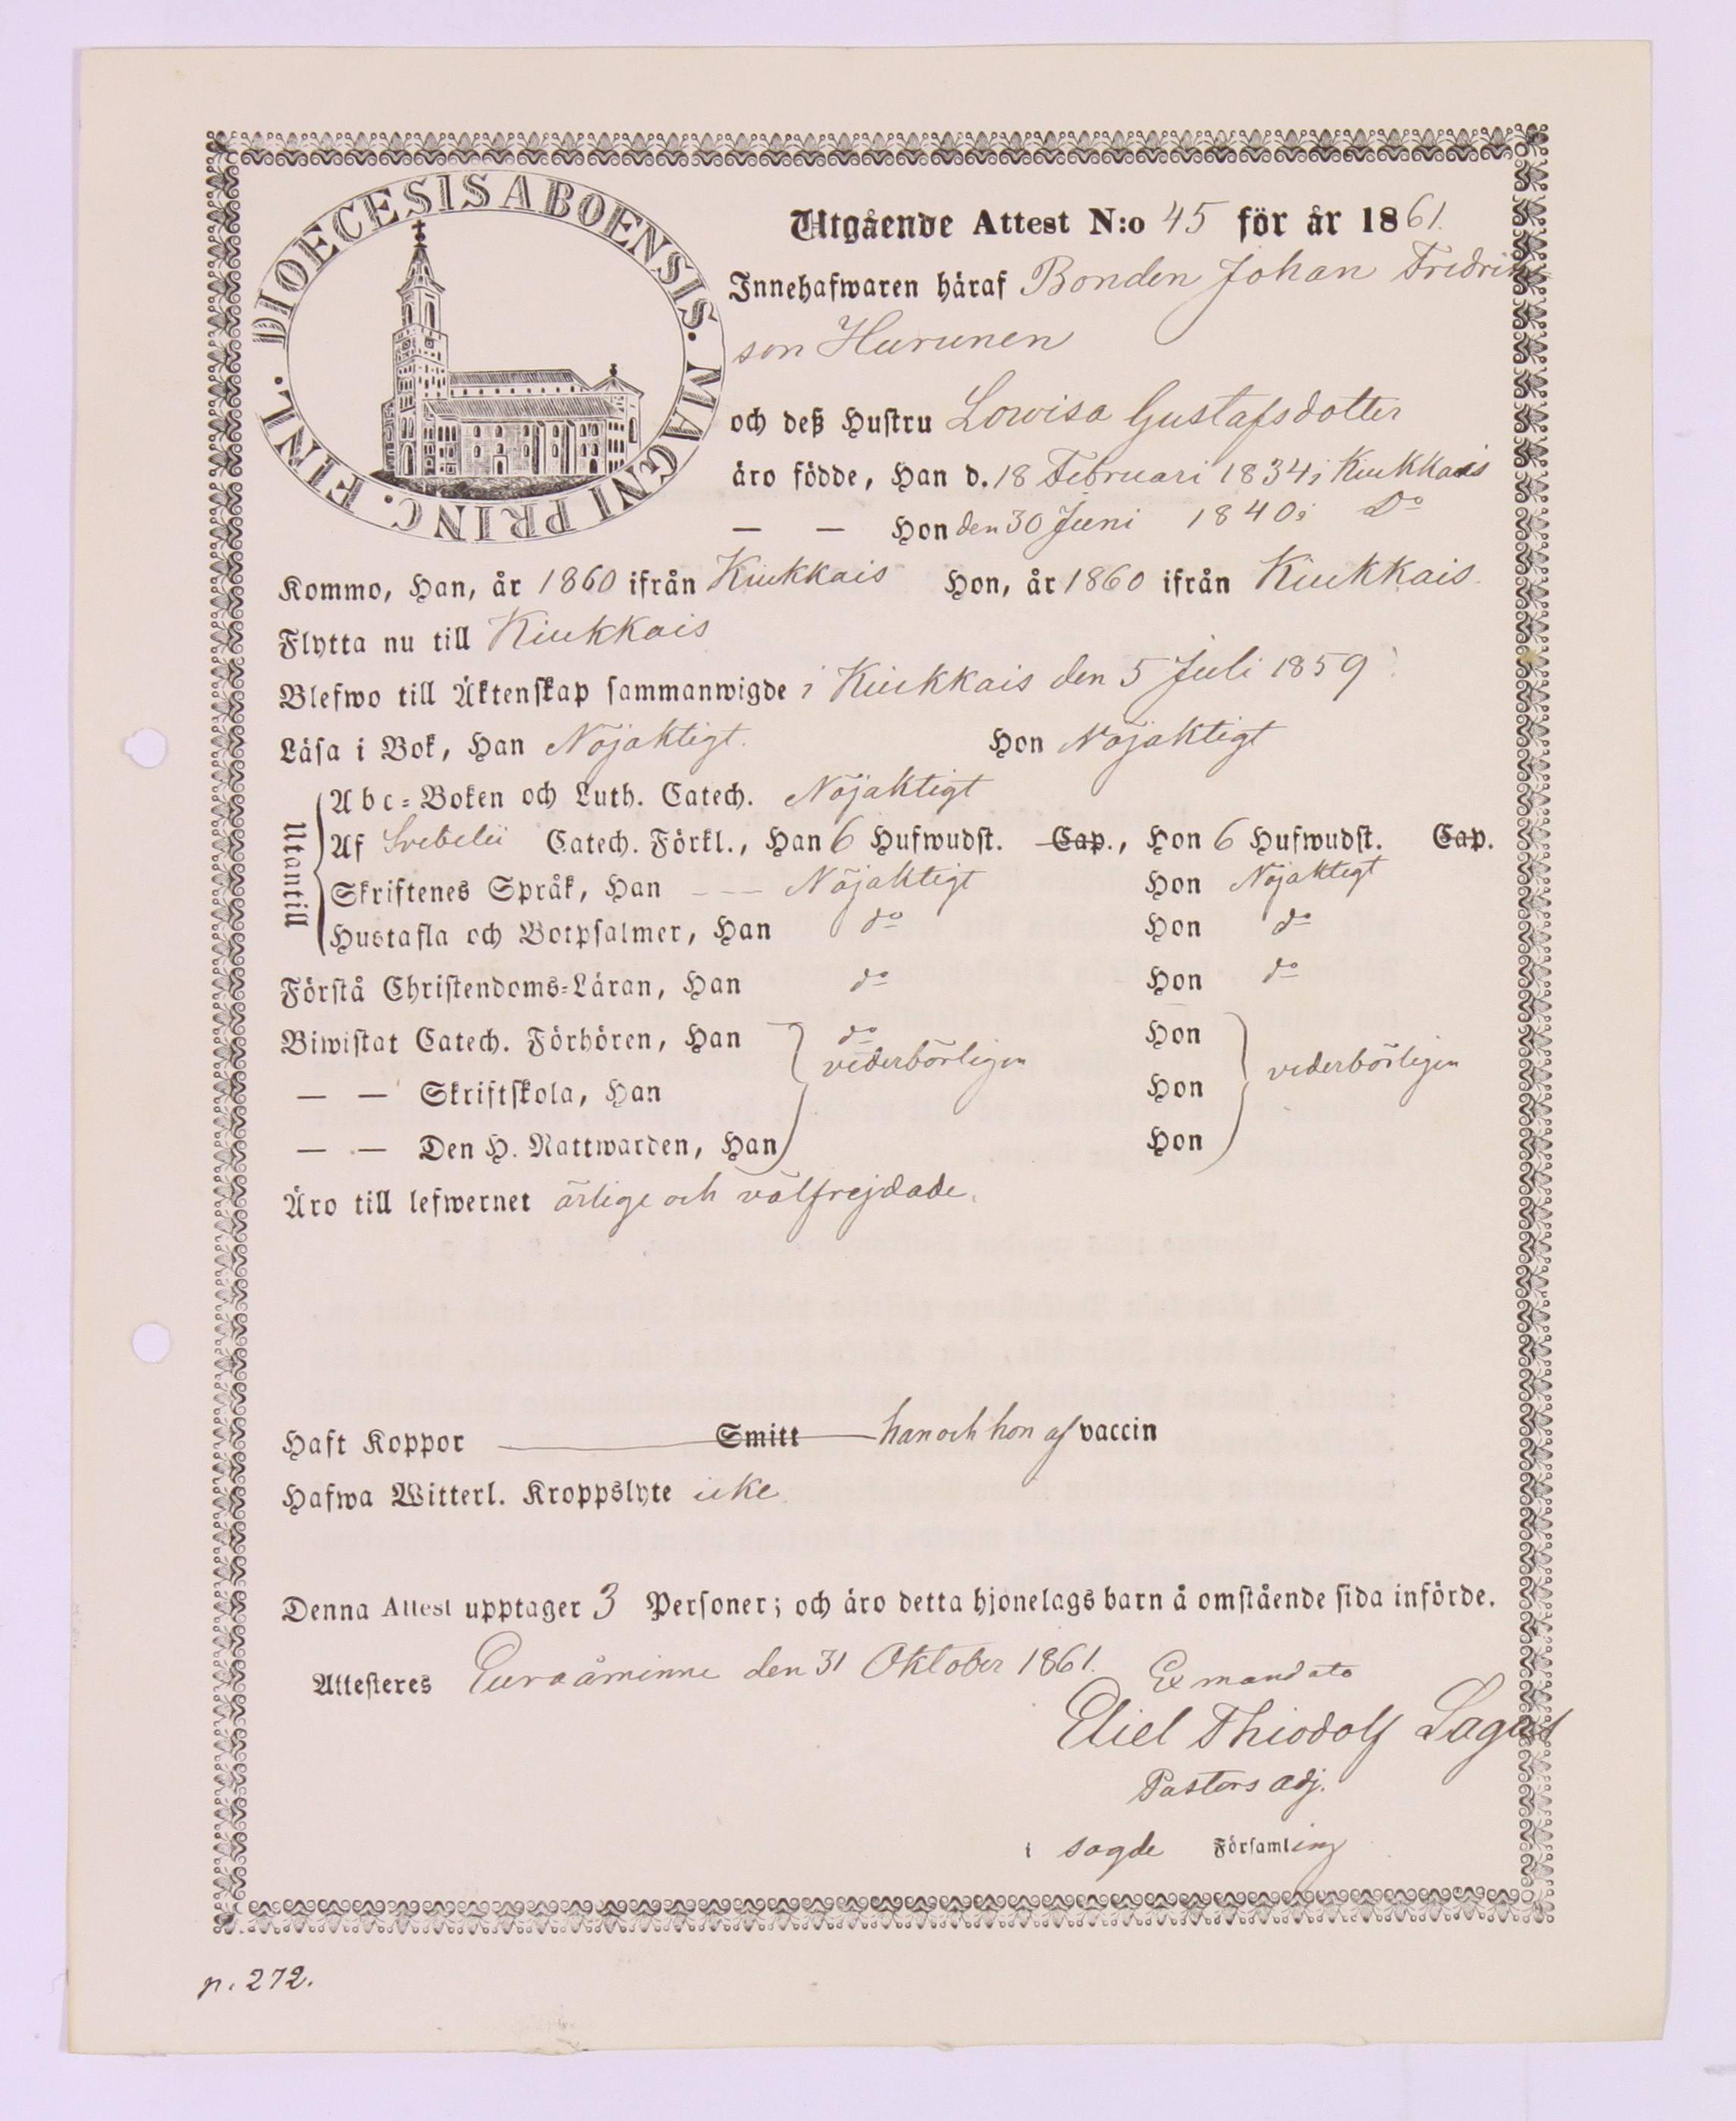 DIOECESIS ABOENSIS. MAGNI PRINC. FINL.
Utgående Attest N:o 45 för år 1861.
Innehafwaren häraf Bonden Johan Fredriks
son Hurunen
och deß Hustru Lovisa Gustafsdotter
äro födde, Han d. 18 Februari 1834 i Kiukkais
— — Hon den 30 Juni 1840 i Do
Kommo, Han, år 1860 ifrån Kiukkais Hon, år 1860 ifrån Kiukkais.
Flytta nu till Kiukkais
Blefwo till Äktenskap sammanwigde i Kiukkais den 5 Juli 1859
Läsa i Bok, Han Nöjaktigt. Hon Nöjaktigt
Utantill
Abc-Boken och Luth. Catech. Nöjaktigt
Af Svebelii Catech. Förkl., Han 6 Hufwudst. Cap., Hon 6 Hufwudst. Cap.
Skriftenes Språk, Han --- Nöjaktigt Hon Nöjaktigt
Hustafla och Botpsalmer, Han do Hon do
Förstå Christendoms-Läran, Han do Hon do
Biwistat Catech. Förhören, Han do Hon
vederbörligen vederbörligen
— — Skriftskola, Han Hon
— — Den H. Nattwarden, Han Hon
Äro till lefwernet ärlige och välfrejdade.
Haft Koppor Smitt han och hon af vaccin
Hafwa Witterl. Kroppslyte icke
Denna Attest upptager 3 Personer; och äro detta hjonelags barn å omstående sida införde.
Attesteres Euraåminne den 31 Oktober 1861. Ex mandato
Eliel Thiodolf Lagus
Pastors adj.
i sagde Församling
p. 272.